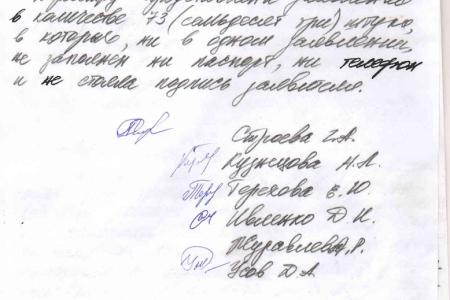 в количестве 73 (семьдесят три) штуки,
в которых, ни в одном заявлении,
не заполнен ни паспорт, ни телефон
и не стояла подпись заявителя.
Строева Г.А.
Кузнецова Н.А.
Терехова Е.Ю.
Ивленко Д.И.
Журавлева
Усов Д.А